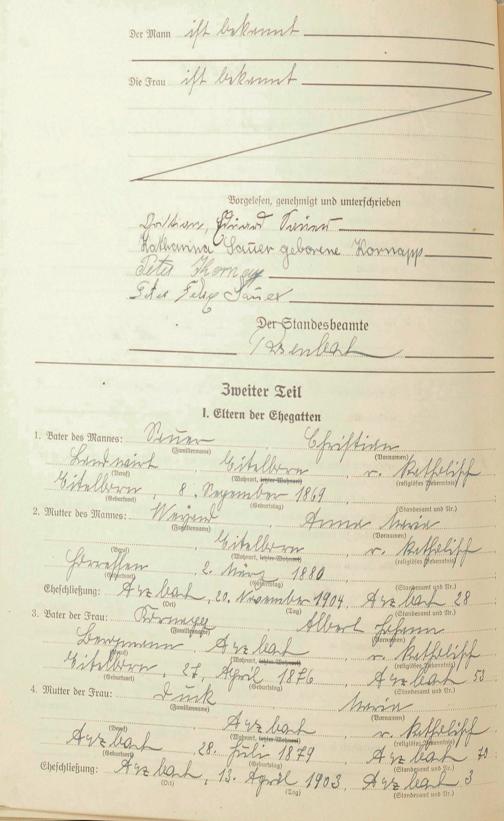 Der Mann ist bekannt
Die Frau ist bekannt
Vorgelesen, genehmigt und unterschrieben
Eduard Sauer
Katharina Sauer geborene Kornapp
Peter
Peter Sauer
Der Standesbeamte
Zweiter Teil
I. Eltern der Ehegatten
1. Vater des Mannes: Sauer Christian
(Familienname) (Vornamen)
Landwirt, Eitelborn, r. Katholisch
(Beruf) (Wohnort, letzter Wohnort) (religiöses Bekenntnis)
Eitelborn, 8. 1869
(Geburtsort) (Geburtstag) (Standesamt und Nr.)
2. Mutter des Mannes: Anna Maria
(Familienname) (Vornamen)
Eitelborn, r. Katholisch
(Beruf) (Wohnort, letzter Wohnort) (religiöses Bekenntnis)
2. März 1880
(Geburtsort) (Geburtstag) (Standesamt und Nr.)
Eheschließung: Arzbach, 20. November 1904. Arzbach 28
(Ort) (Tag) (Standesamt und Nr.)
3. Vater der Frau: Albert Johann
(Familienname) (Vornamen)
Bergmann, Arzbach, r. Katholisch
(Beruf) (Wohnort, letzter Wohnort) (religiöses Bekenntnis)
Eitelborn, 27. April 1876 Arzbach 53
(Geburtsort) (Geburtstag) (Standesamt und Nr.)
4. Mutter der Frau: Maria
(Familienname) (Vornamen)
Arzbach, r. Katholisch
(Beruf) (Wohnort, letzter Wohnort) (religiöses Bekenntnis)
Arzbach, 28. Juli 1879 Arzbach 70
(Geburtsort) (Geburtstag) (Standesamt und Nr.)
Eheschließung: Arzbach, 13. April 1903. Arzbach 3
(Ort) (Tag) (Standesamt und Nr.)